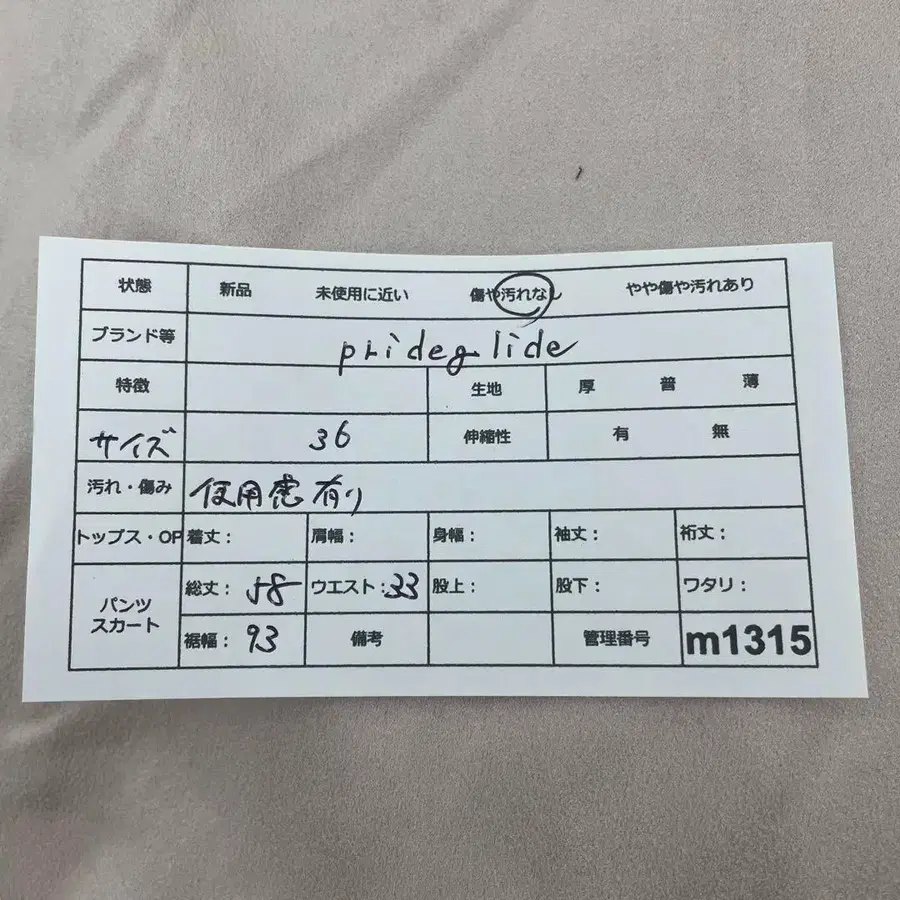 状態 新品 未使用に近い 傷や汚れなし やや傷や汚れあり
ブランド等 prideglide
特徴 生地 厚 普 薄
サイズ 36 伸縮性 有 無
汚れ・傷み 使用感有り
トップス・OP 着丈： 肩幅： 身幅： 袖丈： 裄丈：
パンツ スカート 総丈： 58 ウエスト：33 股上： 股下： ワタリ：
裾幅： 93 備考 管理番号 m1315